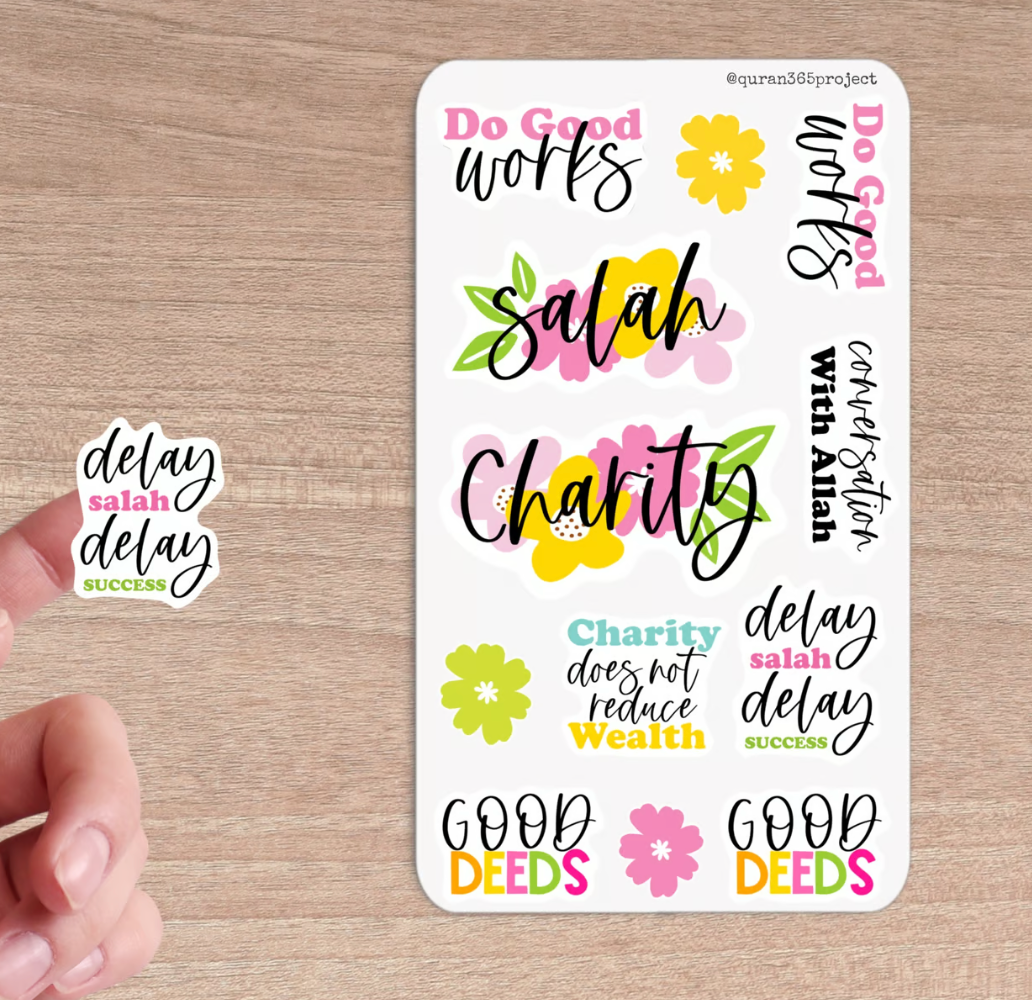 @quran365project
Do Good
works
Do Good
works
salah
conversation
With Allah
Charity
delay
salah
delay
SUCCESS
Charity
does not
reduce
Wealth
delay
salah
delay
SUCCESS
GOOD
DEEDS
GOOD
DEEDS